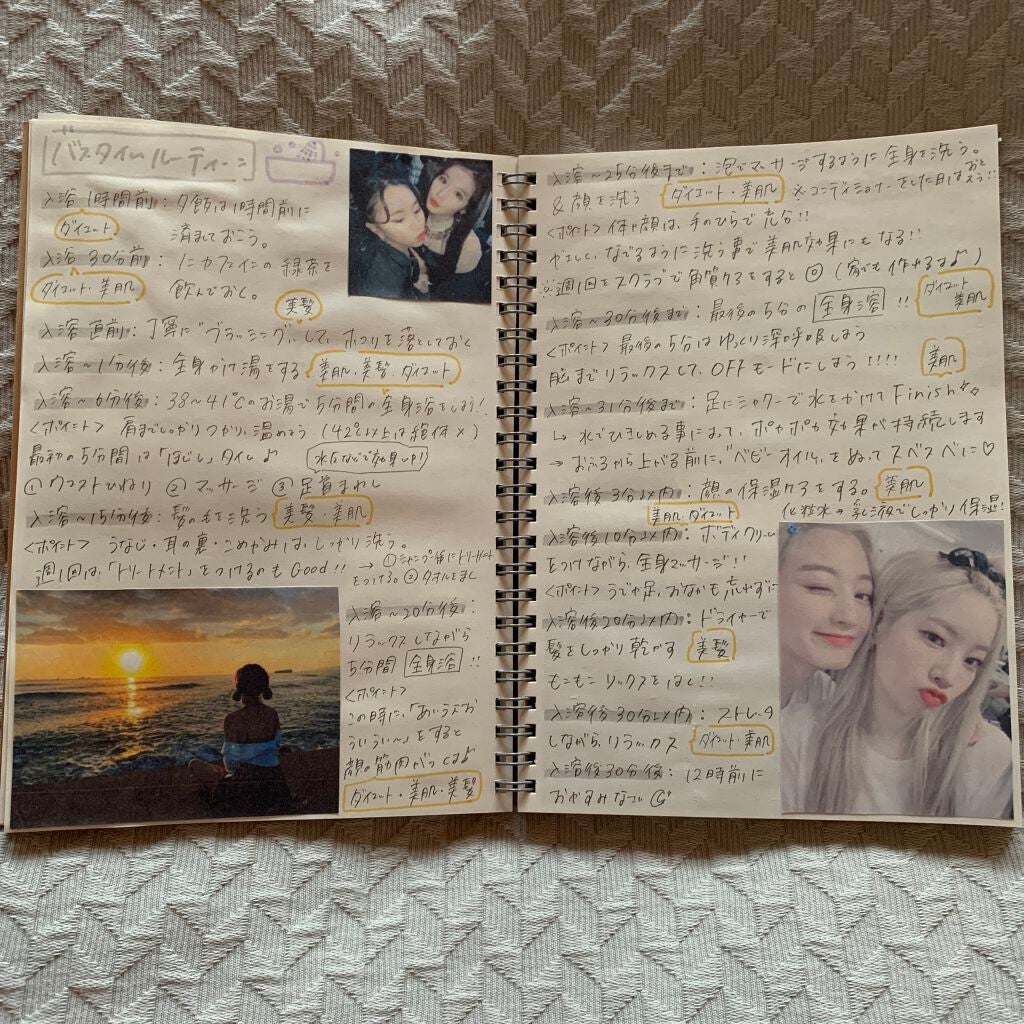 バスタイムルーティーン
入浴1時間前：夕飯は1時間前に
ダイエット
済ましておこう。
入浴30分前：ノンカフェインの緑茶を
ダイエット・美肌
飲んでおく。
美髪
入浴直前：丁寧に"ブラッシング"して、ホコリを落としておく
入浴〜1分後：全身かけ湯をする 美肌・美髪・ダイエット
入浴〜6分後：38〜41℃のお湯で5分間の全身浴をしよう!
<ポイント> 肩までしっかりつかり、温めよう (42℃以上は絶体×)
最初の5分間は「ほぐし」タイム♪ 水圧などで効果up!
① ウエストひねり ② マッサージ ③ 足首まわし
入浴〜15分後：髪の毛を洗う 美髪・美肌
<ポイント> うなじ・耳の裏・こめかみは、しっかり洗う。
週1回は、「トリートメント」をつけるのもGood!! → ①シャンプー後にトリートメント
をつける。②タオルをまく
入浴〜20分後：
リラックスしながら
5分間 全身浴 !!
<ポイント>
この時に、「あいうえお
ういうい〜」をすると
顔の筋肉がつくよ♪
ダイエット・美肌・美髪
入浴〜25分後まで：泡でマッサージするように全身を洗う。
&顔を洗う ダイエット・美肌 ※コンディショナーをした日はおとそう!!
<ポイント> 体や顔は、手のひらで充分!!
やさしく、なでるように洗う事で美肌効果にもなる!!
※週1回をスクラブで角質ケアをすると◎ (家でも作れるよ♪)
ダイエット
美肌
入浴〜30分後まで：最後の5分の 全身浴 !!
<ポイント> 最後の5分はゆっくり深呼吸しよう
脳までリラックスして、OFFモードにしよう!!!! 美肌
入浴〜31分後まで：足にシャワーで水をかけてFinish☆
↳ 水でひきしめる事によって、ポカポカ効果が持続します
→ おふろから上がる前に、"ベビーオイル"をぬってスベスベに♡
入浴後3分以内：顔の保湿ケアをする。 美肌
美肌・ダイエット 化粧水→乳液でしっかり保湿!
入浴後10分以内：ボディクリーム
をつけながら、全身マッサージ!
<ポイント> うでや足、おなかも忘れずに
入浴後20分以内：ドライヤーで
髪をしっかり乾かす 美髪
もこもこソックスをはく!!
入浴後30分以内：ストレッチ
しながら、リラックス ダイエット・美肌
入浴後30分後：12時前に
おやすみなさい